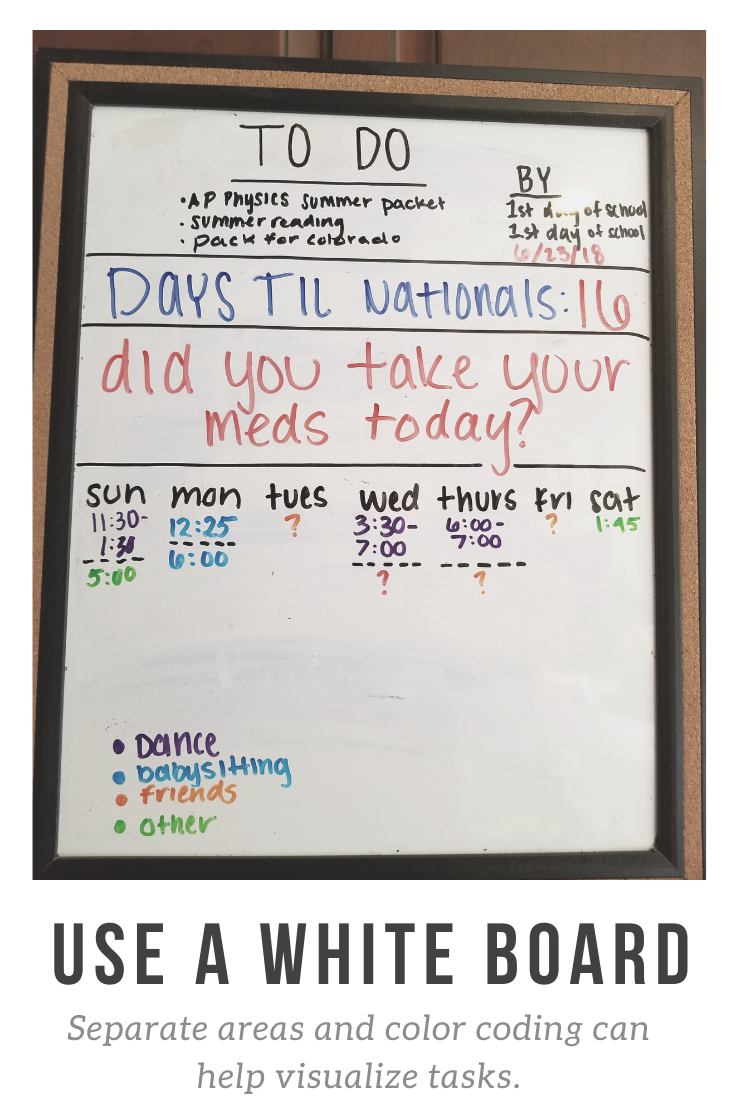 TO DO
BY
• AP Physics summer packet 1st day of school
• summer reading 1st day of school
• pack for colorado 6/23/18
DAYS TIL Nationals: 16
did you take your
meds today?
sun mon tues wed thurs Fri sat
11:30- 12:25 ? 3:30- 6:00- ? 1:45
1:30 6:00 7:00 7:00
5:00 ? ?
• Dance
• babysitting
• friends
• other
USE A WHITE BOARD
Separate areas and color coding can
help visualize tasks.